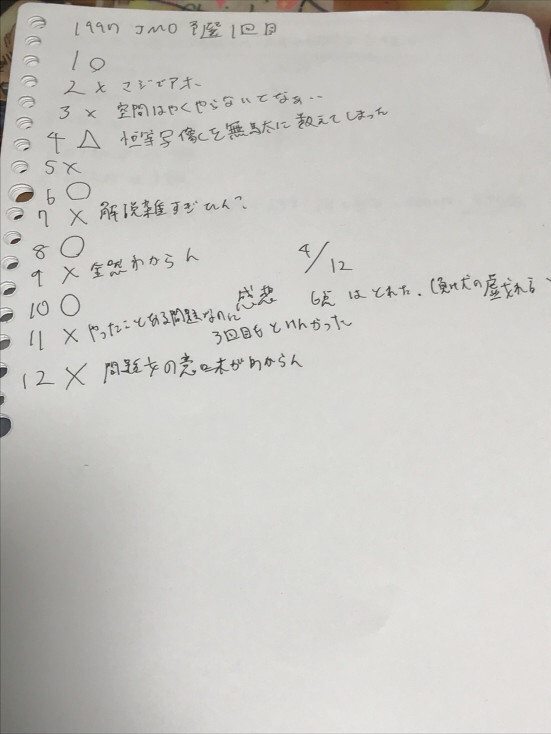 1997 JMO 予選 1回目
1 ○
2 × まじでアホー
3 × 空間はやくやらないとなぁ..
4 △ 恒等写像を無駄に数えてしまった
5 ×
6 ○
7 × 解説雑すぎひん?
8 ○
9 × 全然わからん
4/12
10 ○
感想 6点はとれた.
11 × やったことある問題なのに
3回目もといんかった
12 × 問題文の意味がわからん